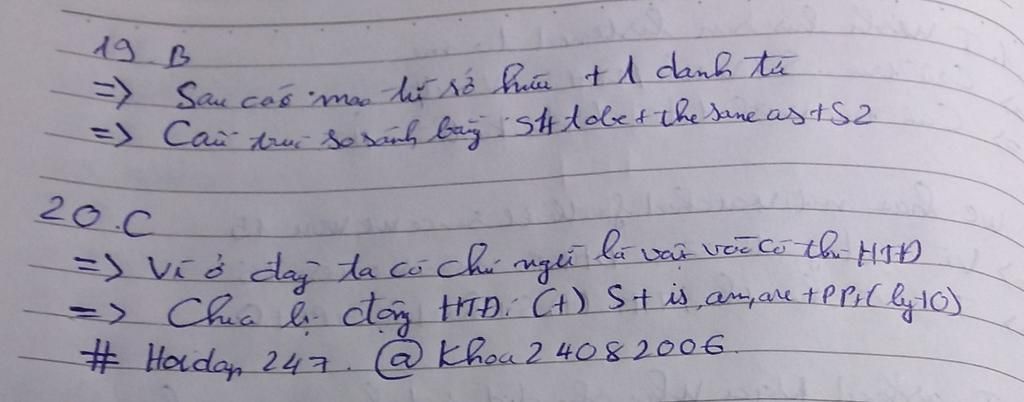 19. B
=> Sau các mạo từ sở hữu + 1 danh từ
=> Cấu trúc so sánh bằng: S1 + to be + the same as + S2
20. C
=> Vì ở đây ta có chủ ngữ là vật và có thì HTĐ
=> Chia bị động HTĐ: (+) S + is, am, are + PP2 + (by + O)
# Hoidap 247. @ Khoa24082006